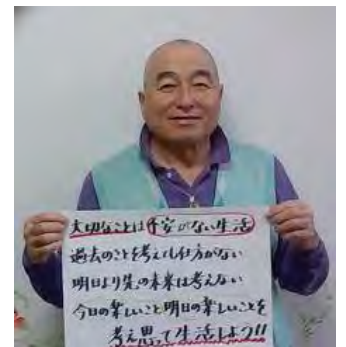 大切なことは不安がない生活
過去のことを考えても仕方がない
明日より先の未来は考えない
今日の楽しいこと明日の楽しいことを
考え思って生活しよう!!